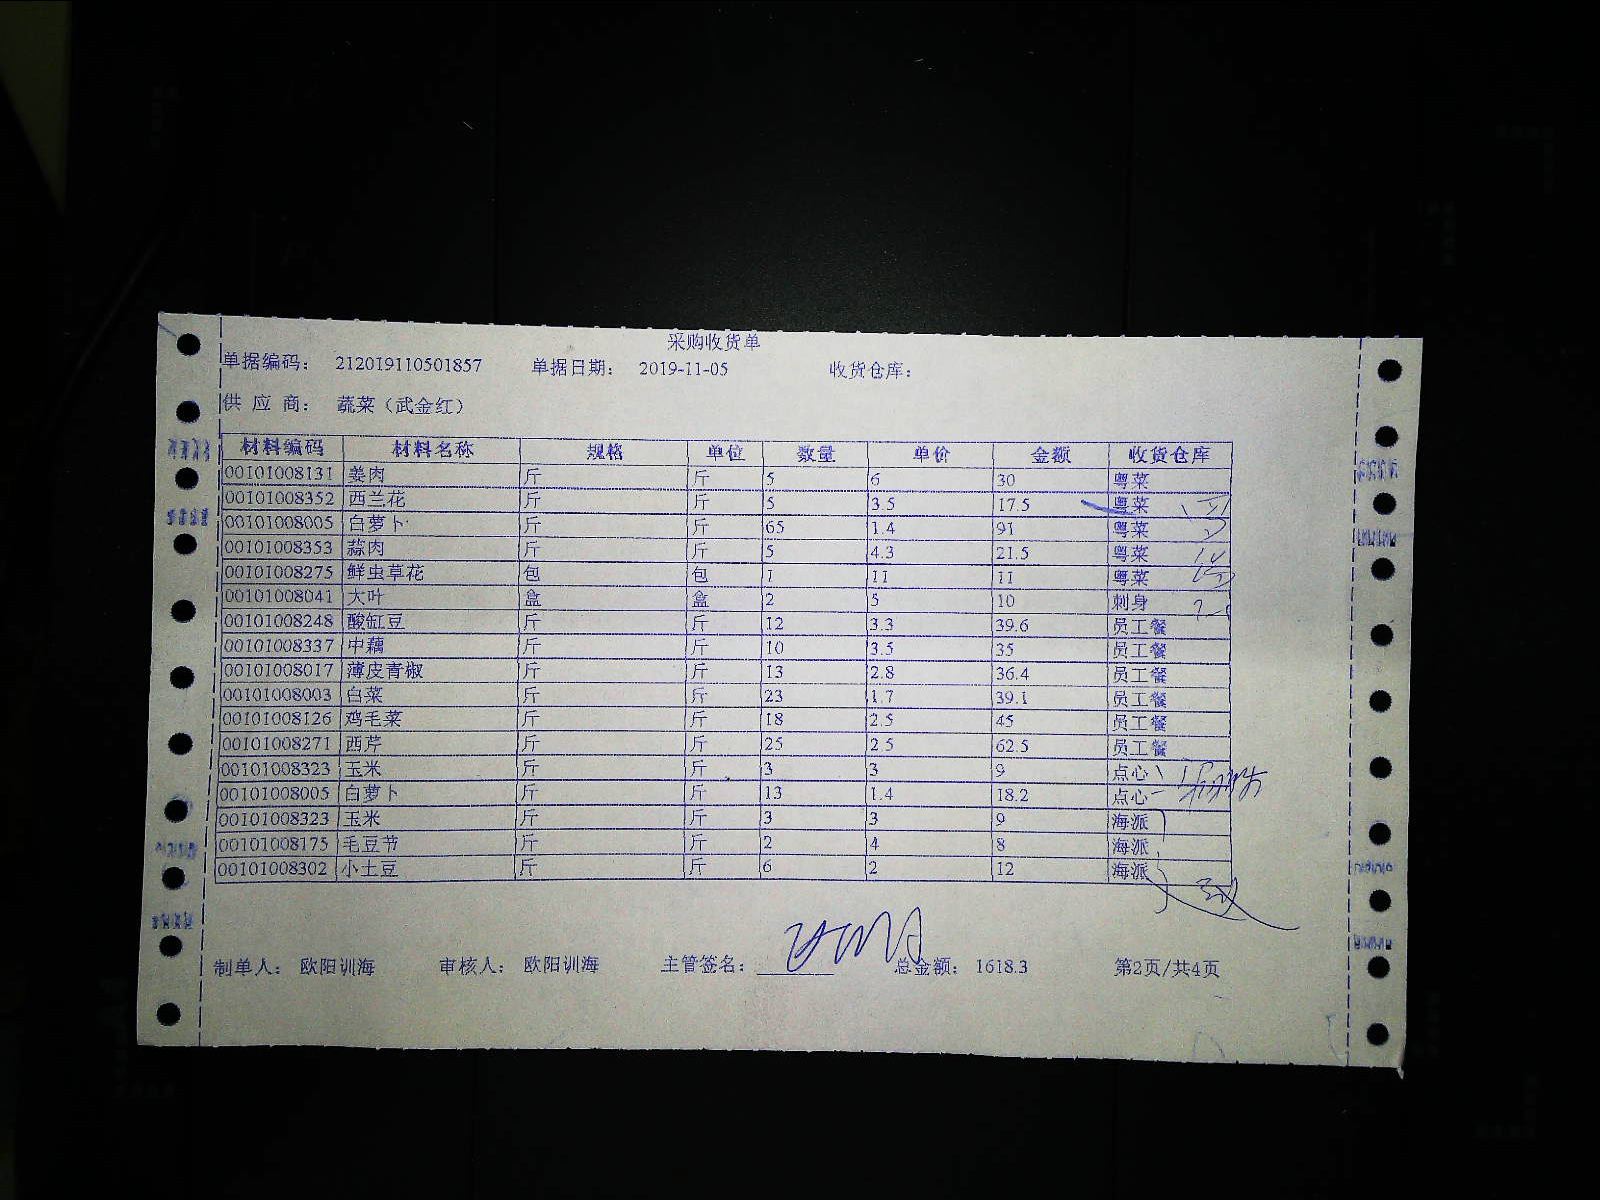 采购收货单
单据编码： 212019110501857 单据日期： 2019-11-05 收货仓库：
供 应 商： 蔬菜（武金红）
材料编码 材料名称 规格 单位 数量 单价 金额 收货仓库
00101008131 姜肉 斤 斤 5 6 30 粤菜
00101008352 西兰花 斤 斤 5 3.5 17.5 粤菜
00101008005 白萝卜 斤 斤 65 1.4 91 粤菜
00101008353 蒜肉 斤 斤 5 4.3 21.5 粤菜
00101008275 鲜虫草花 包 包 1 11 11 粤菜
00101008041 大叶 盒 盒 2 5 10 刺身
00101008248 酸缸豆 斤 斤 12 3.3 39.6 员工餐
00101008337 中藕 斤 斤 10 3.5 35 员工餐
00101008017 薄皮青椒 斤 斤 13 2.8 36.4 员工餐
00101008003 白菜 斤 斤 23 1.7 39.1 员工餐
00101008126 鸡毛菜 斤 斤 18 2.5 45 员工餐
00101008271 西芹 斤 斤 25 2.5 62.5 员工餐
00101008323 玉米 斤 斤 3 3 9 点心
00101008005 白萝卜 斤 斤 13 1.4 18.2 点心
00101008323 玉米 斤 斤 3 3 9 海派
00101008175 毛豆节 斤 斤 2 4 8 海派
00101008302 小土豆 斤 斤 6 2 12 海派
制单人： 欧阳训海 审核人： 欧阳训海 主管签名： 总金额： 1618.3 第2页/共4页